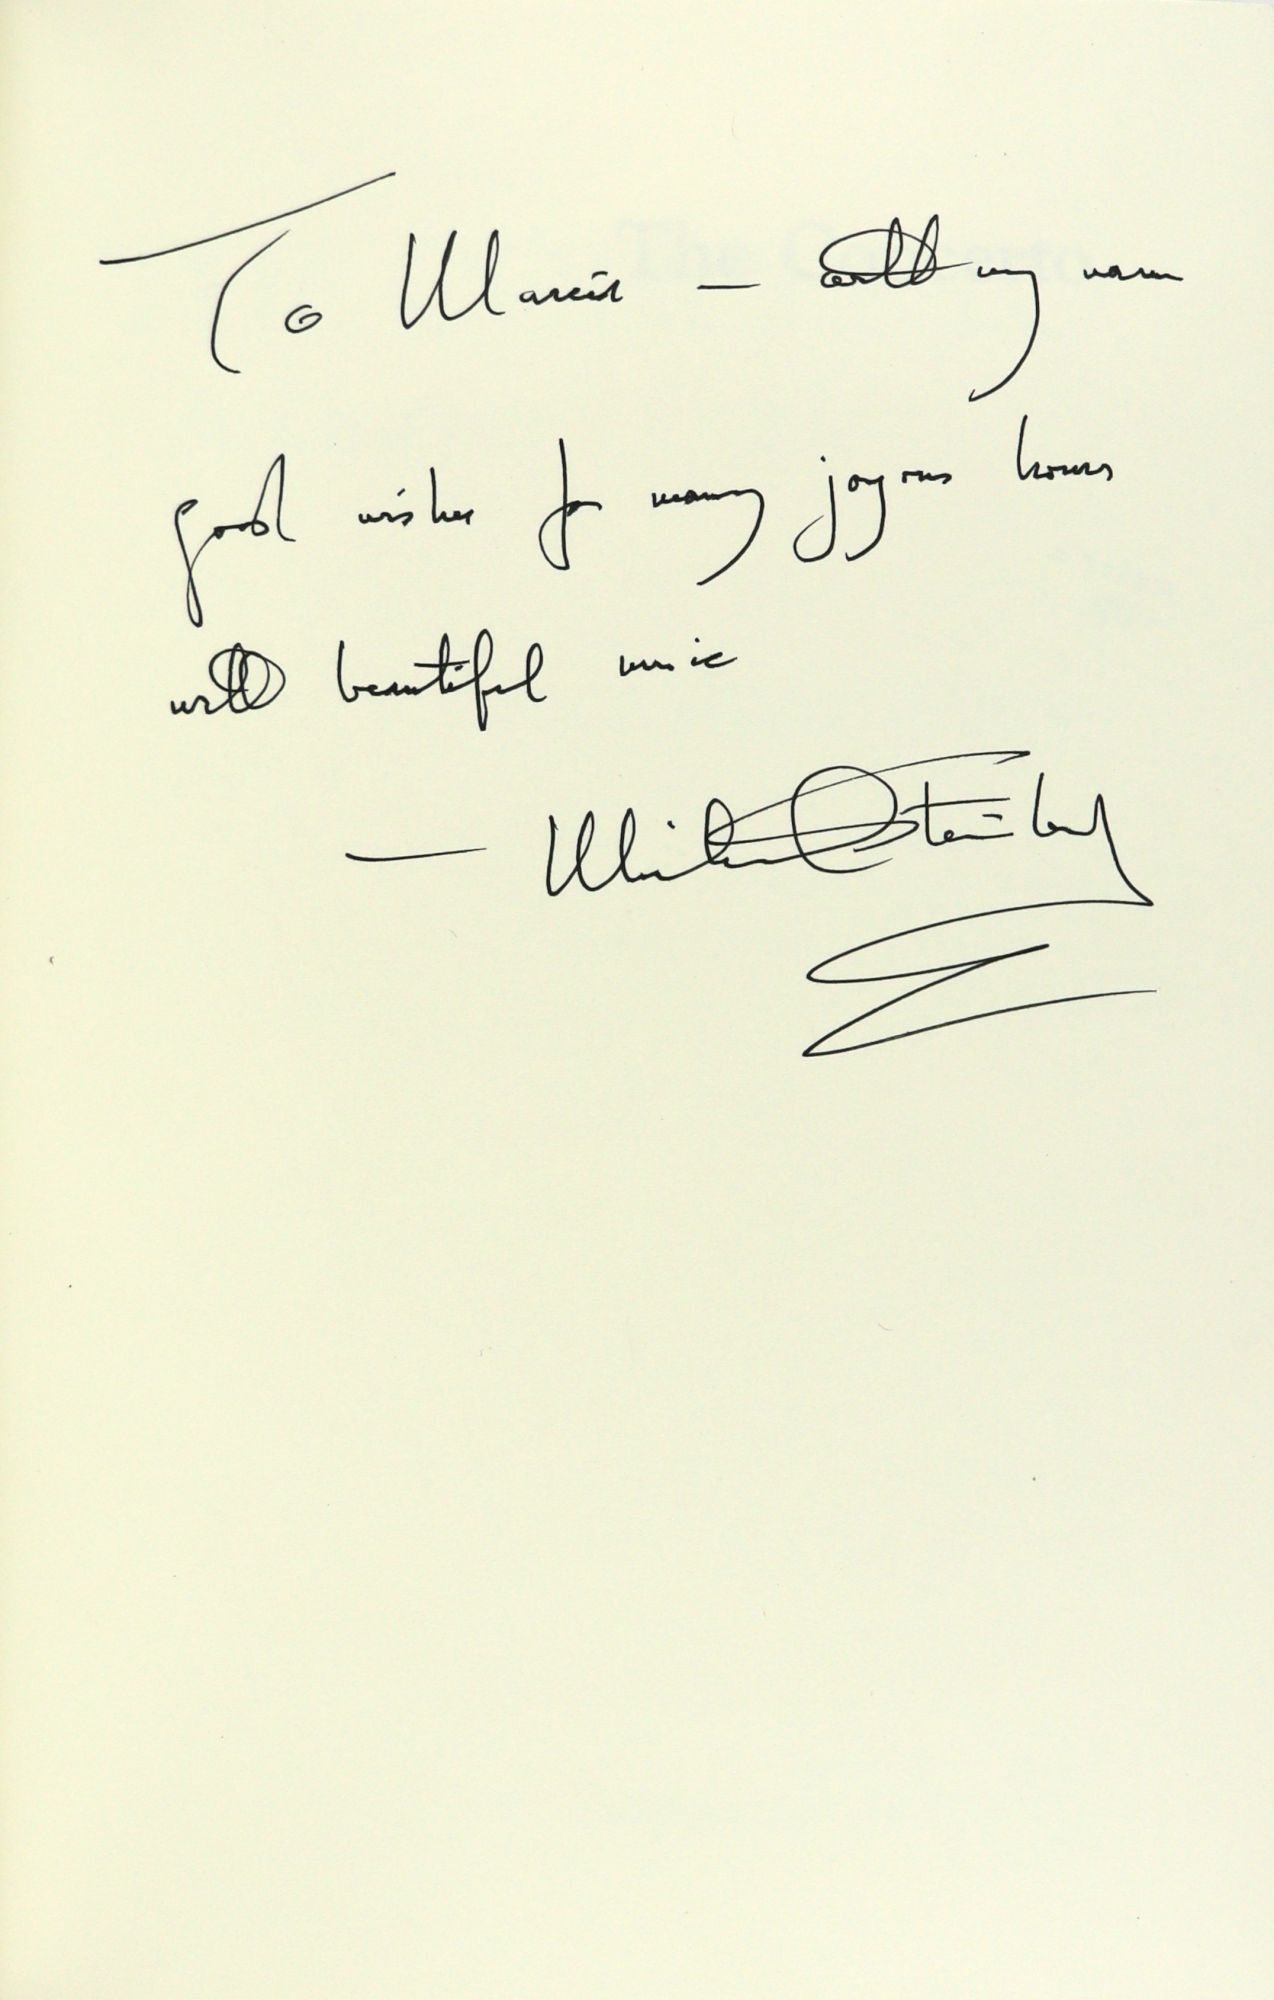 To Marcia — with my warm
good wishes for many joyous hours
with beautiful music
— Michael Steinberg
The Concerto